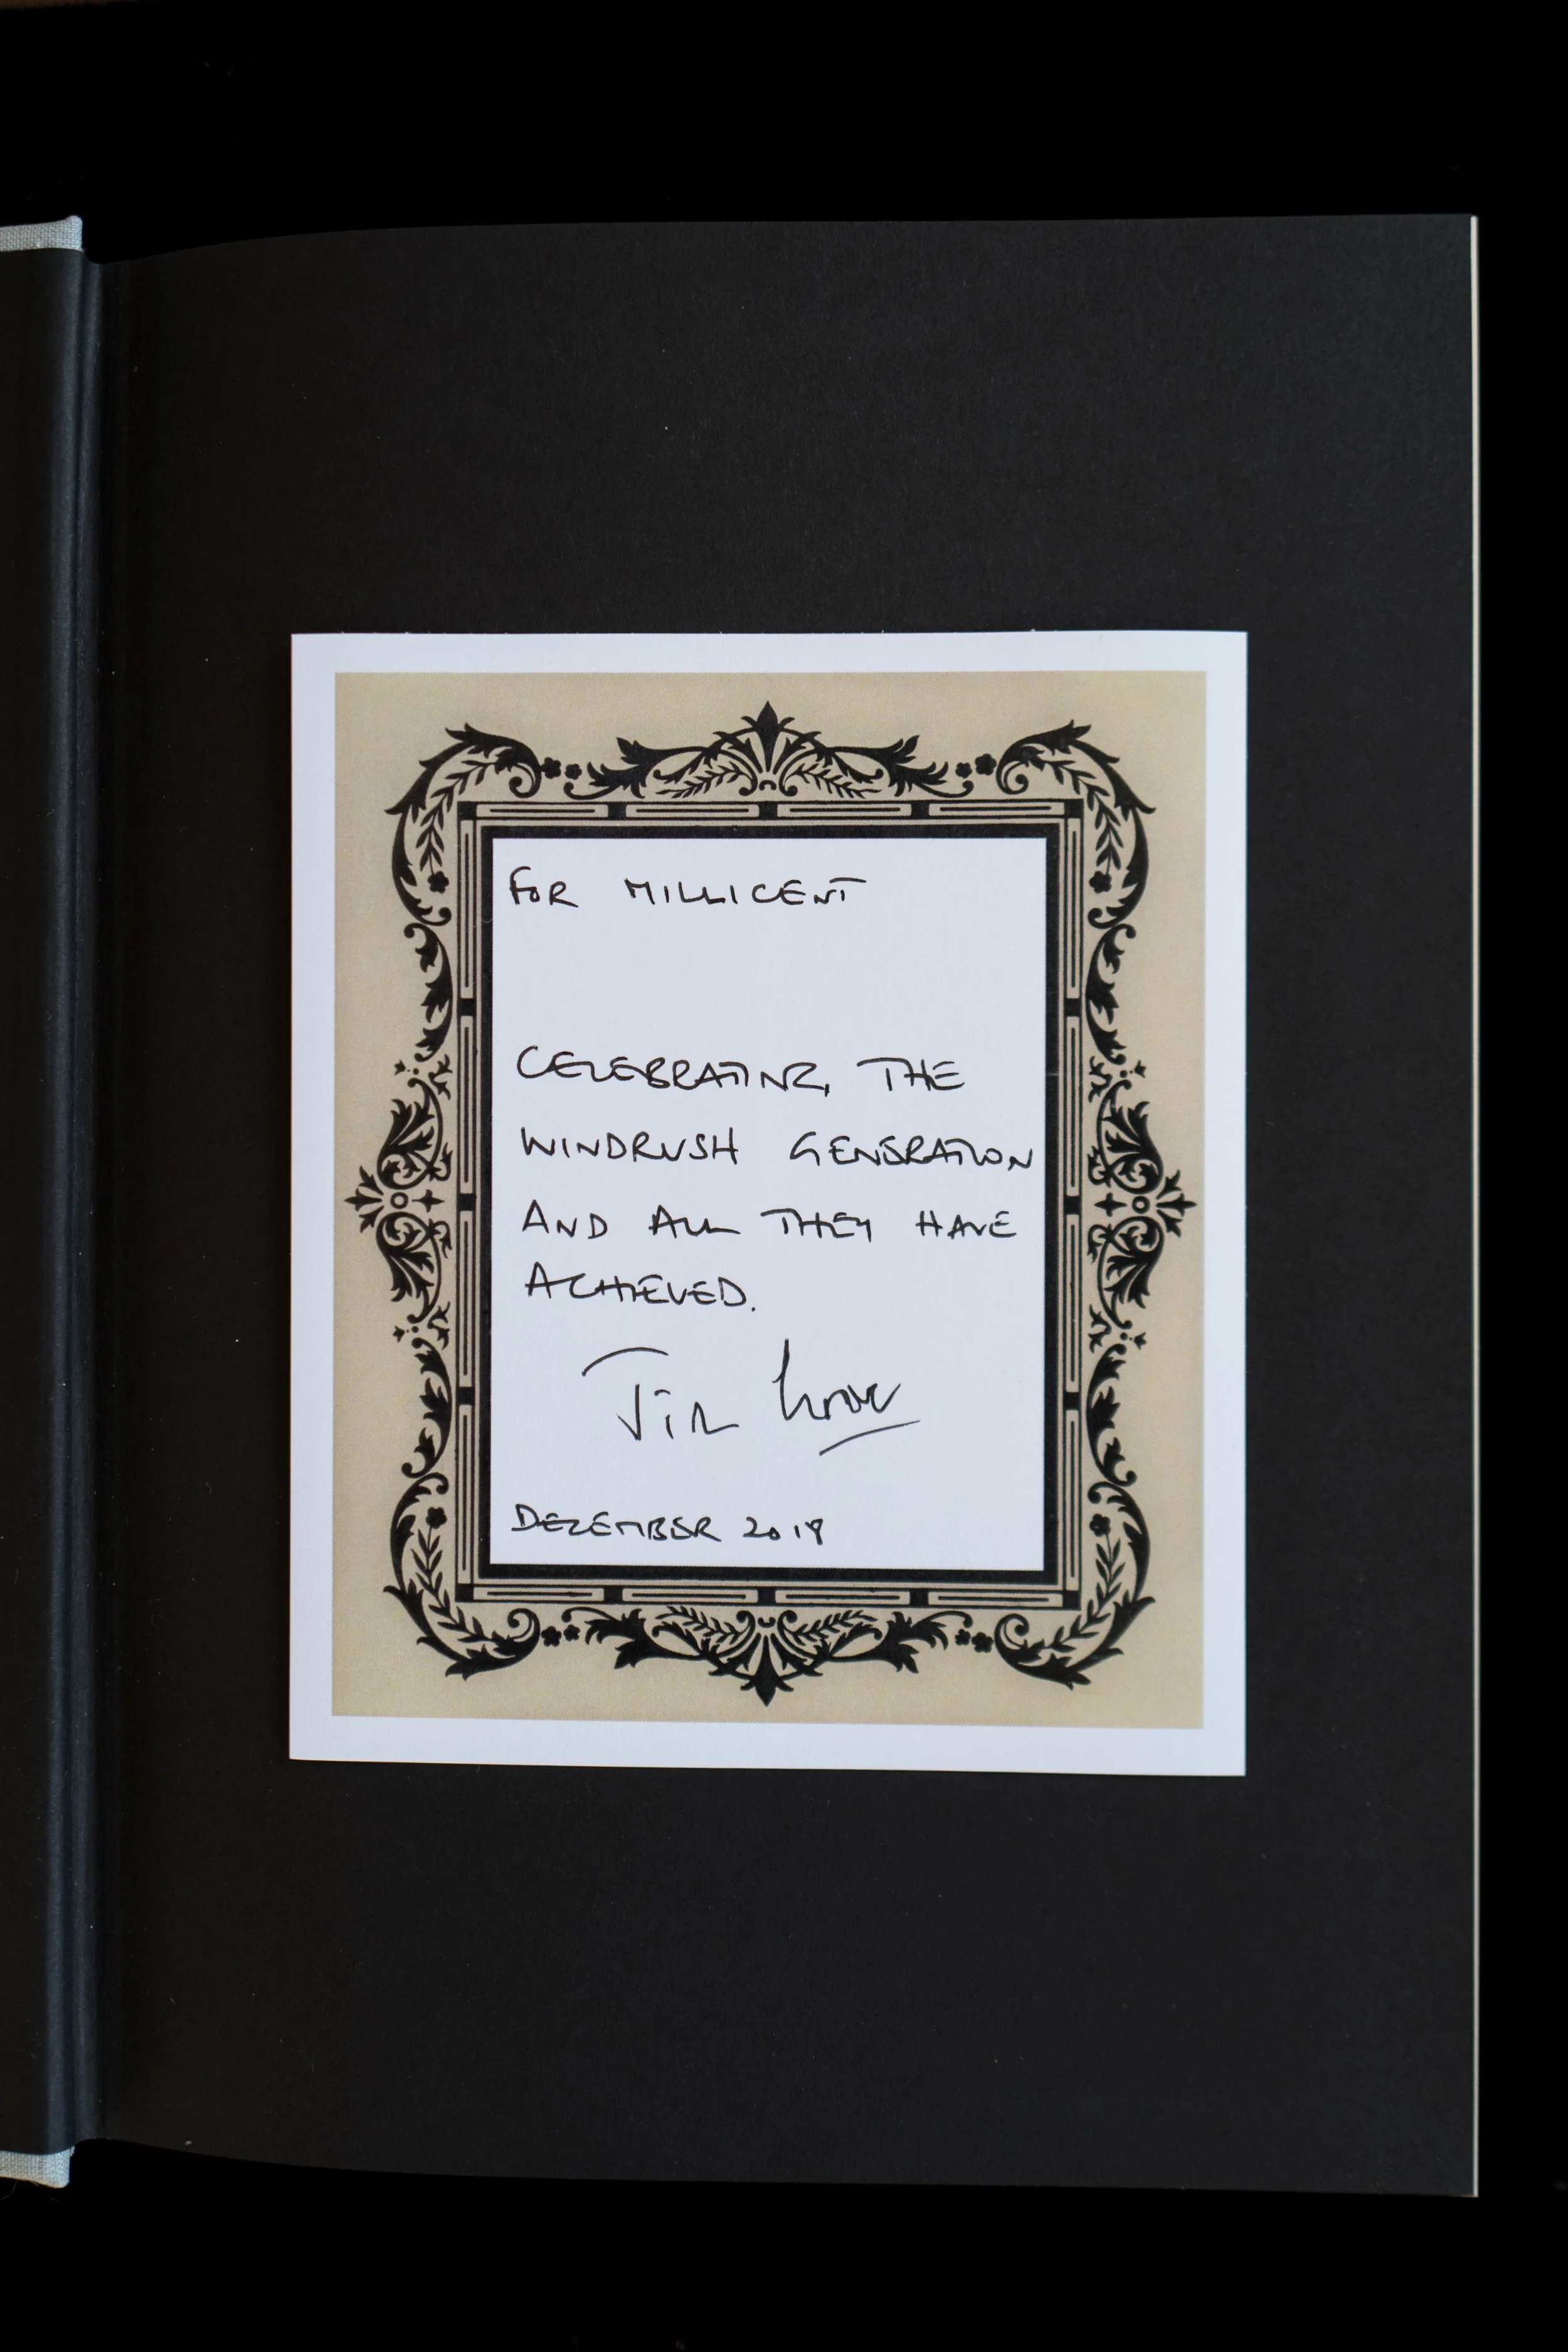 FOR MILLICENT
CELEBRATING THE
WINDRUSH GENERATION
AND ALL THEY HAVE
ACHIEVED.
DECEMBER 2019